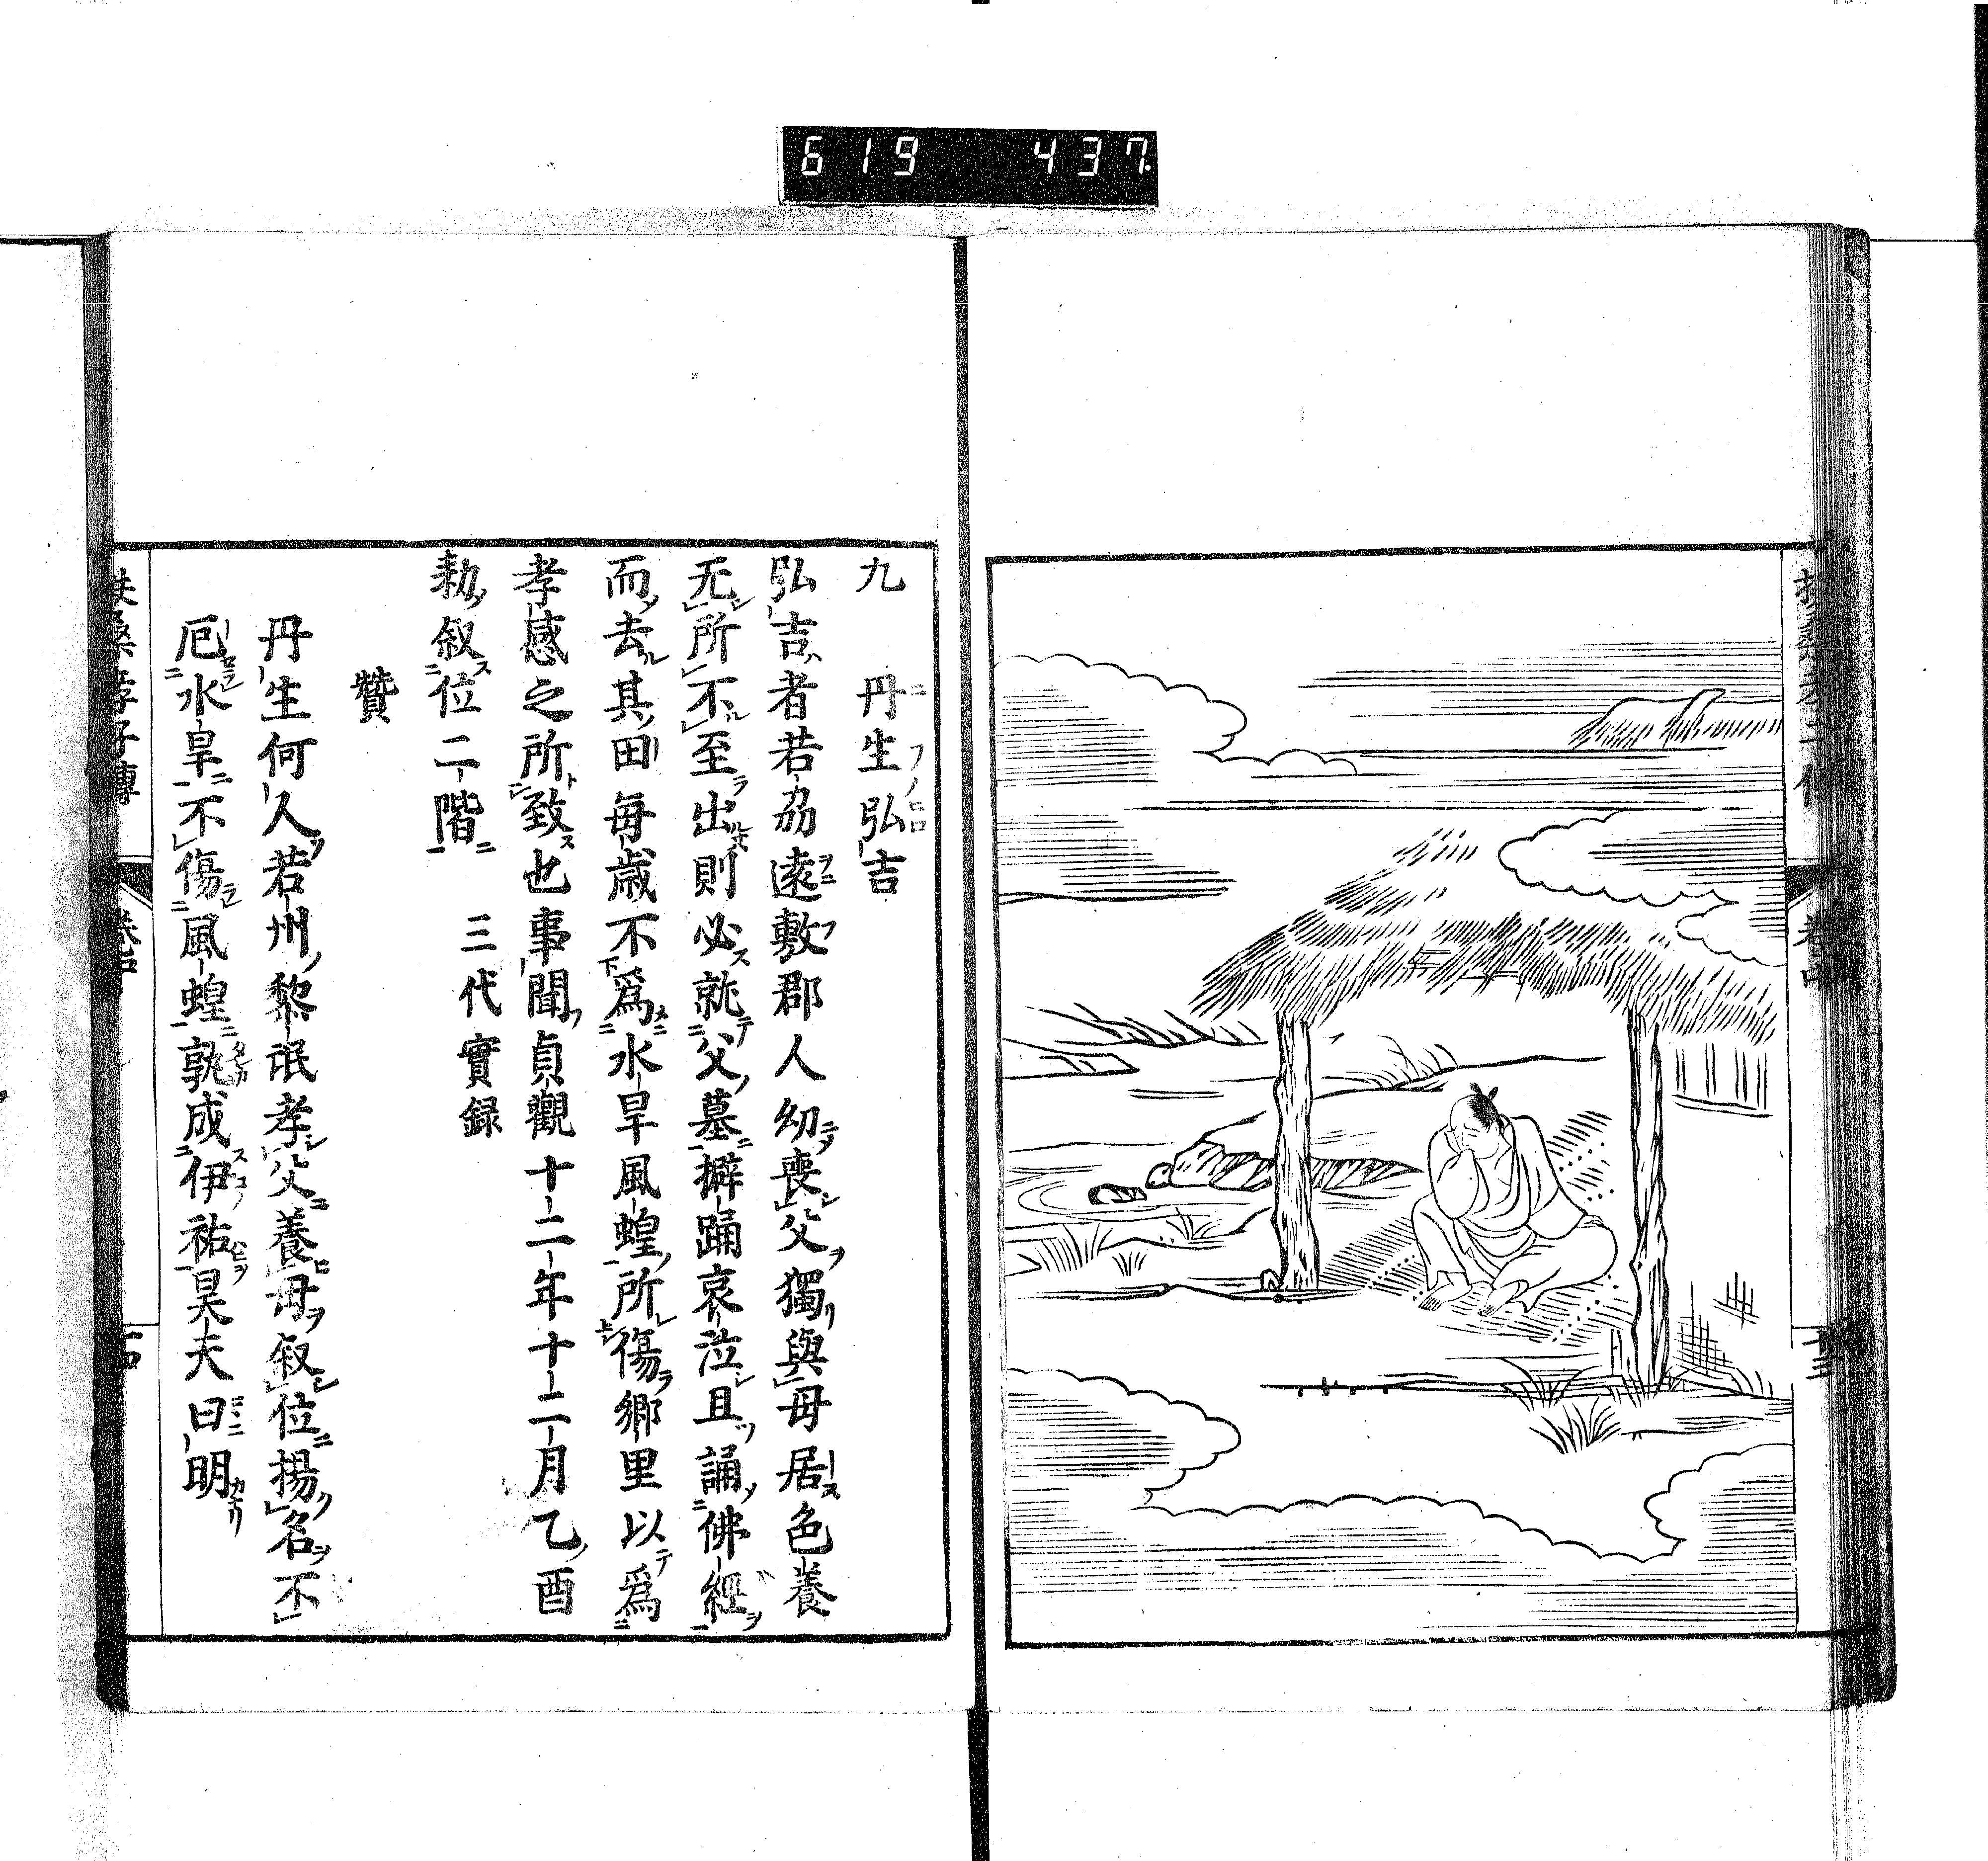 619 437.
九 丹生弘吉
弘吉者若劦遠敷郡人幼喪父獨與母居色養
无所不至出則必就父墓擗踊哀泣且誦佛經
而去其田每歲不爲水旱風蝗所傷鄉里以爲
孝感之所致也事聞貞觀十二年十二月乙酉
勑叙位二階 三代實録
贊
丹生何人若州黎氓孝父養母叙位揚名不
厄水旱不傷風蝗孰成伊祐昊天曰明
扶桑孝子傳